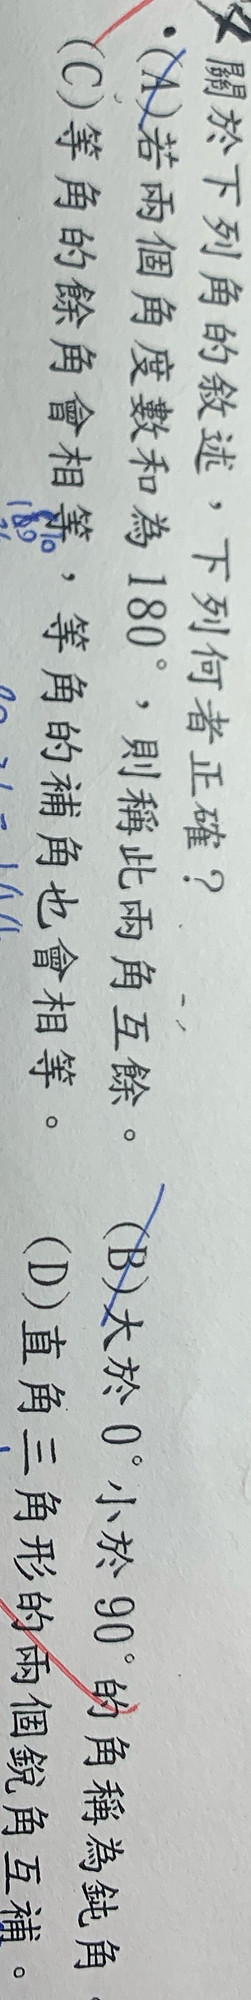 關於下列角的敘述，下列何者正確？
(A)若兩個角度數和為180°，則稱此兩角互餘。 (B)大於0°小於90°的角稱為鈍角。
(C)等角的餘角會相等，等角的補角也會相等。 (D)直角三角形的兩個銳角互補。